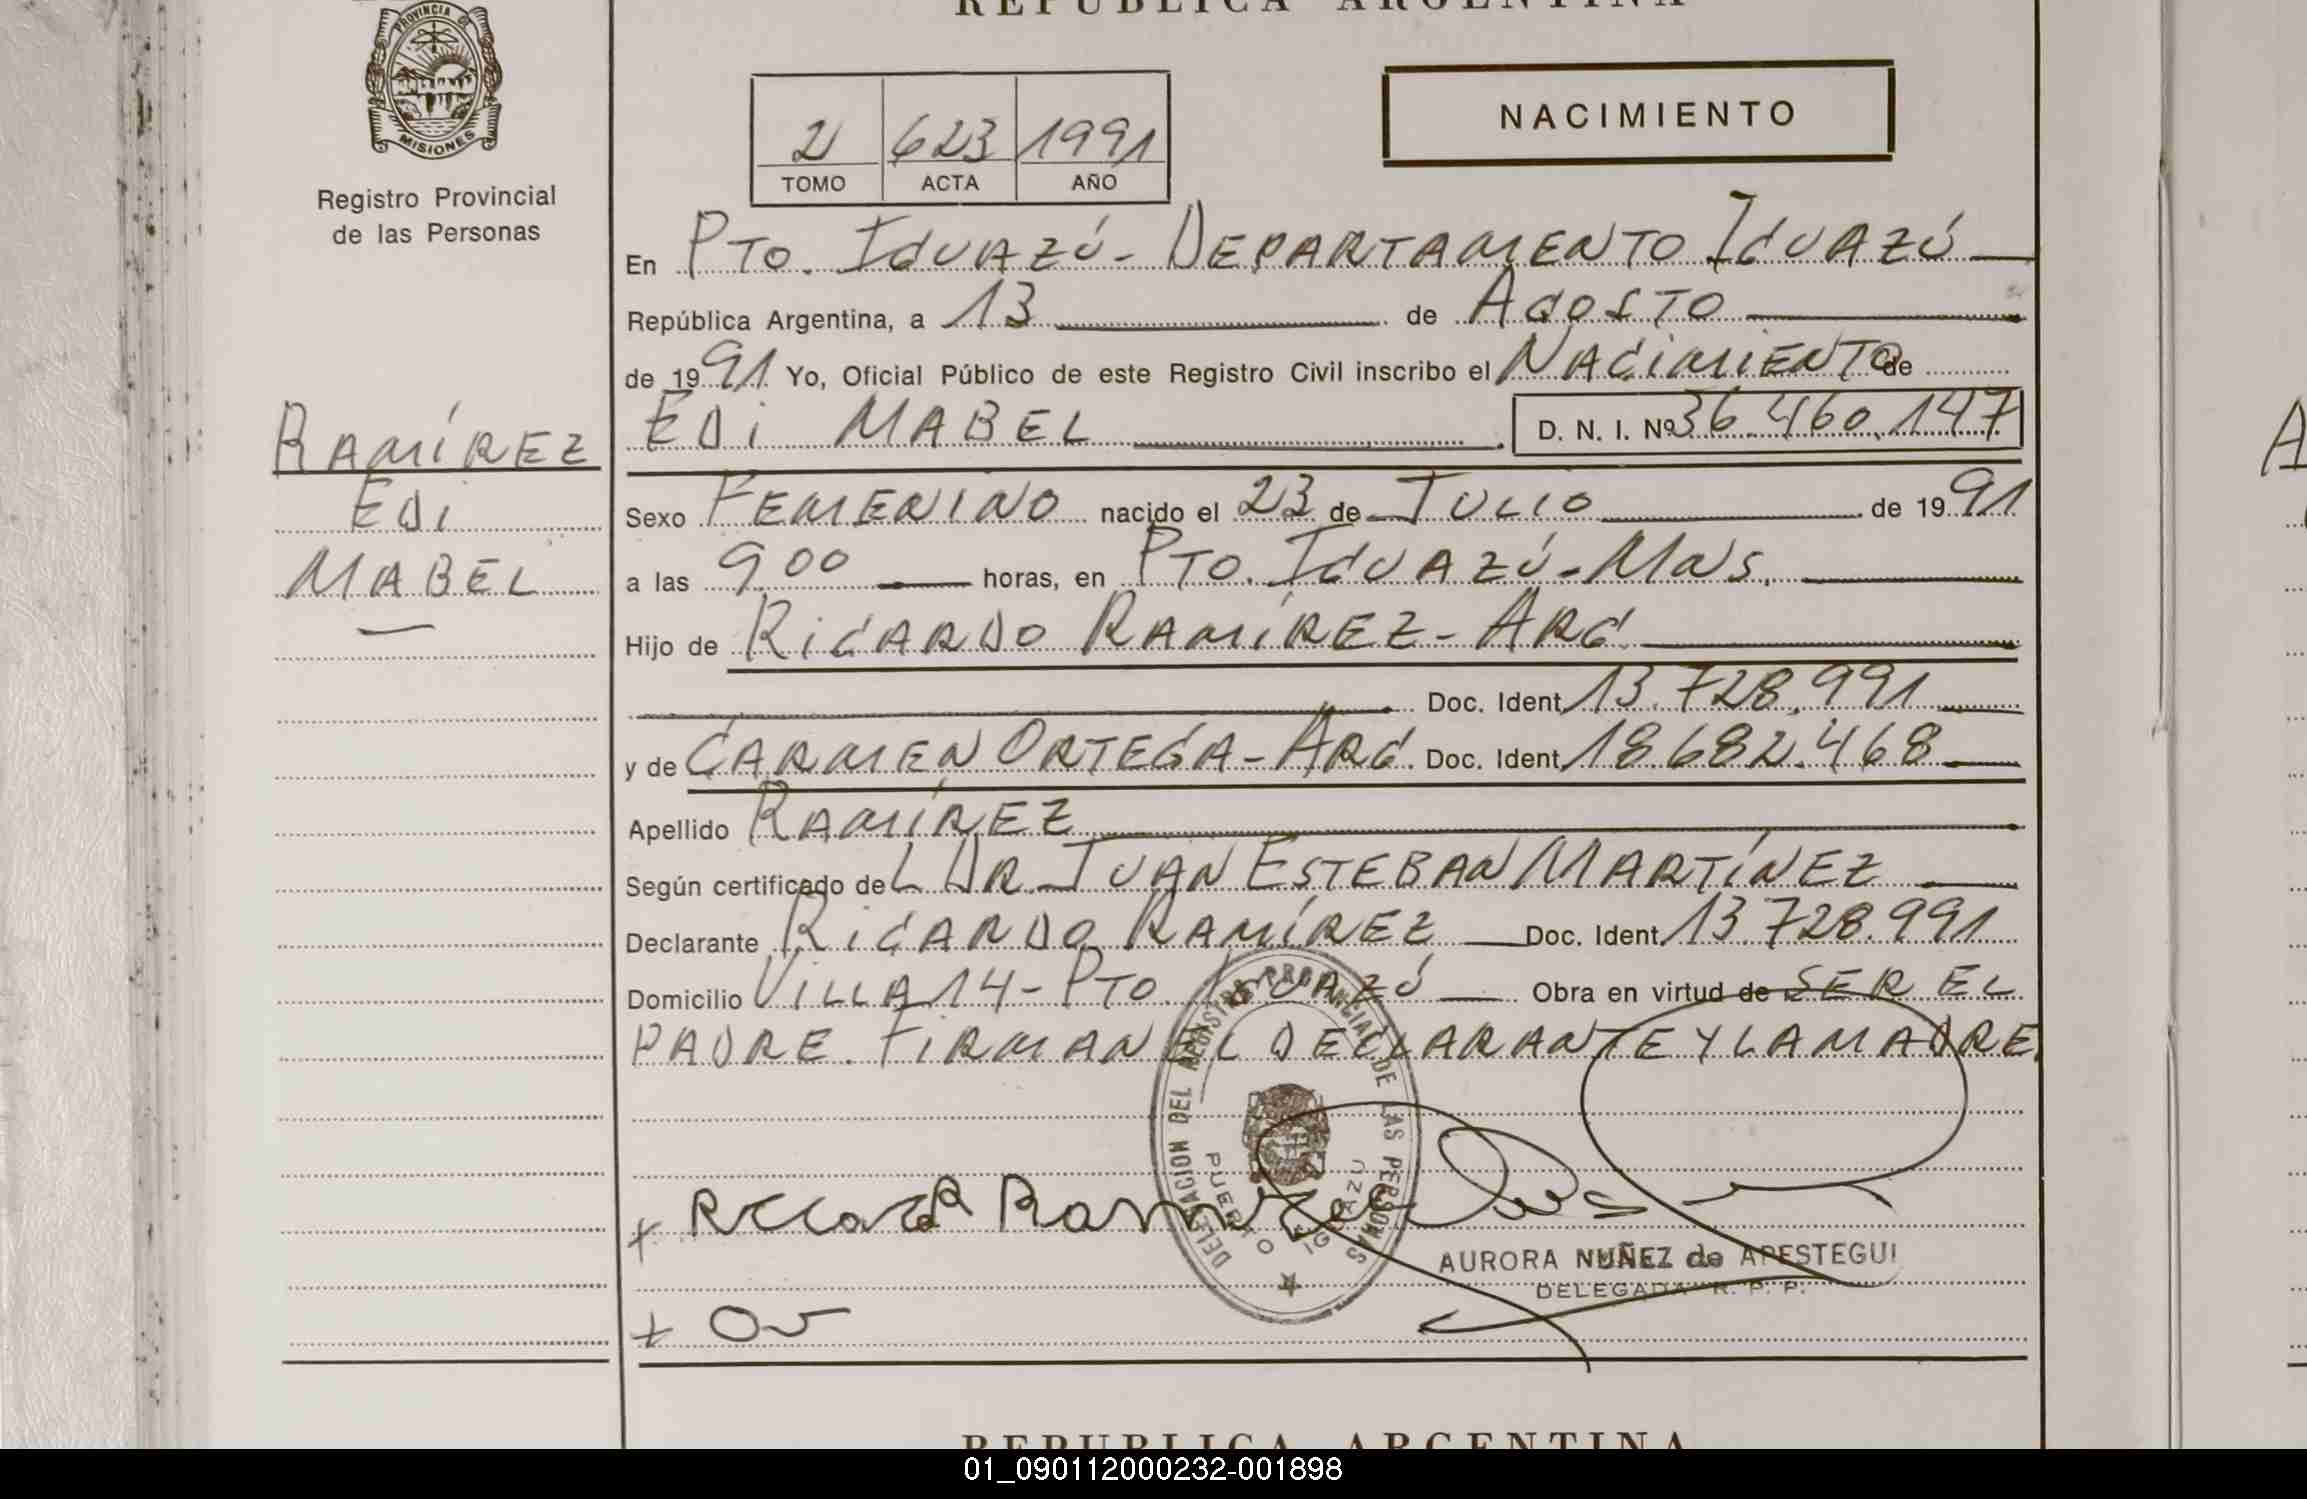 REPUBLICA ARGENTINA
PROVINCIA DE
MISIONES
Registro Provincial
de las Personas
2 623 1991
TOMO ACTA AÑO
NACIMIENTO
En PTO. IGUAZÚ - DEPARTAMENTO IGUAZÚ
República Argentina, a 13 de AGOSTO
de 1991 Yo, Oficial Público de este Registro Civil inscribo el NACIMIENTO de
EDI MABEL D. N. I. Nº 36.460.147
RAMÍREZ
EDI
MABEL
Sexo FEMENINO nacido el 23 de JULIO de 1991
a las 9 00 horas, en PTO. IGUAZÚ - Mns.
Hijo de RICARDO RAMÍREZ - ARG.
Doc. Ident. 13.728.991
y de CARMEN ORTEGA - ARG. Doc. Ident. 18.682.468
Apellido RAMÍREZ
Según certificado del DR. JUAN ESTEBAN MARTÍNEZ
Declarante RICARDO RAMÍREZ Doc. Ident. 13.728.991
Domicilio VILLA 14 - PTO. IGUAZÚ Obra en virtud de SER EL
PADRE. FIRMAN EL DECLARANTE Y LA MADRE
DELEGACION DEL REGISTRO PROVINCIAL DE LAS PERSONAS
PUERTO IGUAZU
Ricardo Ramirez
AURORA NUÑEZ de APESTEGUI
DELEGADA R. P. P.
REPUBLICA ARGENTINA
01_090112000232-001898